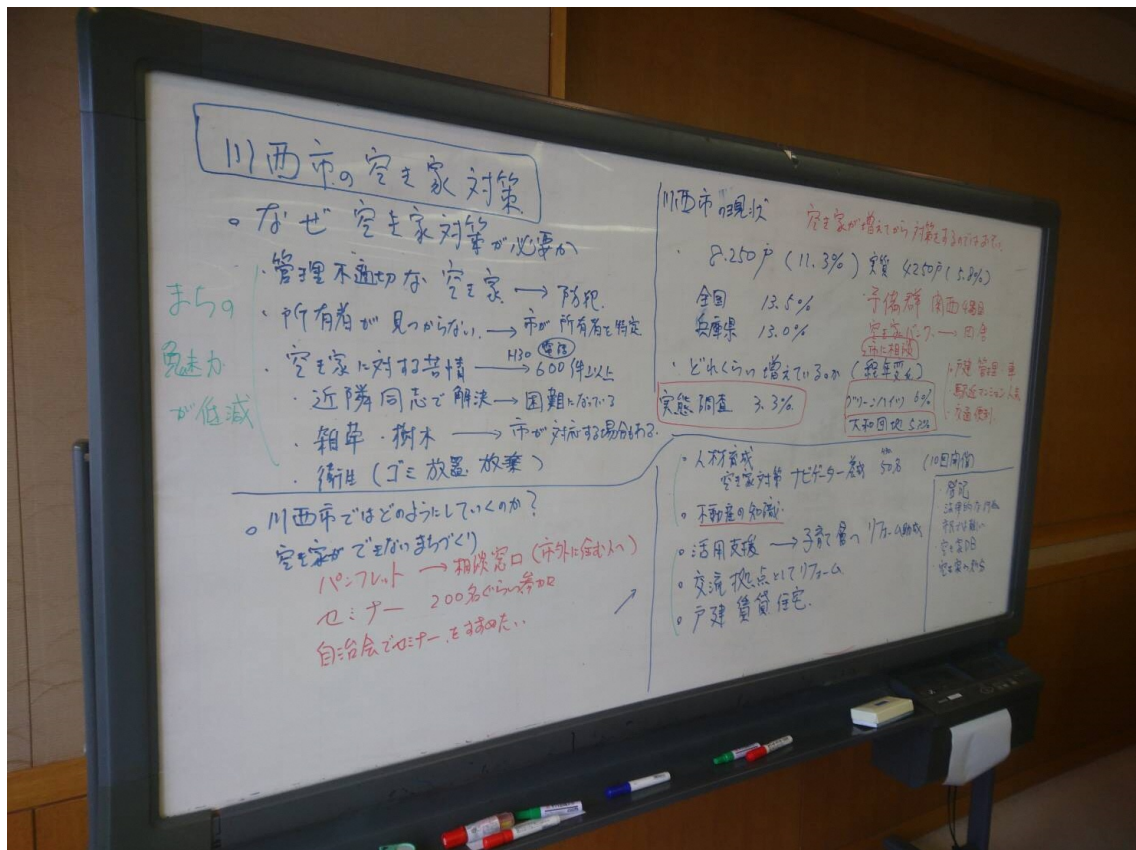 川西市の空き家対策
○ なぜ空き家対策が必要か
・管理不適切な空き家 → 防犯
・所有者が見つからない → 市が所有者を特定
・空き家に対する苦情 → 600件以上
H30 電話
・近隣同志で解決 → 困難になっている
・雑草・樹木 → 市が対応する場合もある
・衛生(ゴミ放置・放棄)
まちの
魅力
が低減
○ 川西市ではどのようにしていくのか?
空き家ができないまちづくり
パンフレット → 相談窓口(市外に住む人へ)
セミナー 200名ぐらい参加
自治会でセミナーをすすめたい
川西市の現状
空き家が増えてから対策をするのではなく
・8.250戸(11.3%)実質 4250戸(5.8%)
全国 13.5%
兵庫県 13.0%
関西
空き家バンク →
市に相談
・どれくらい増えているのか(経年変化)
実態調査 3.3%
グリーンハイツ
大和団地
・戸建 管理 車
駅近マンション 人気
・交通便利
○ 人材育成
空き家対策ナビゲーター養成 50名 (10回開催)
○ 不動産の知識
○ 活用支援 → 子育て層へ リフォーム助成
○ 交流拠点としてリフォーム
○ 戸建賃貸住宅
・登記
空き家DB